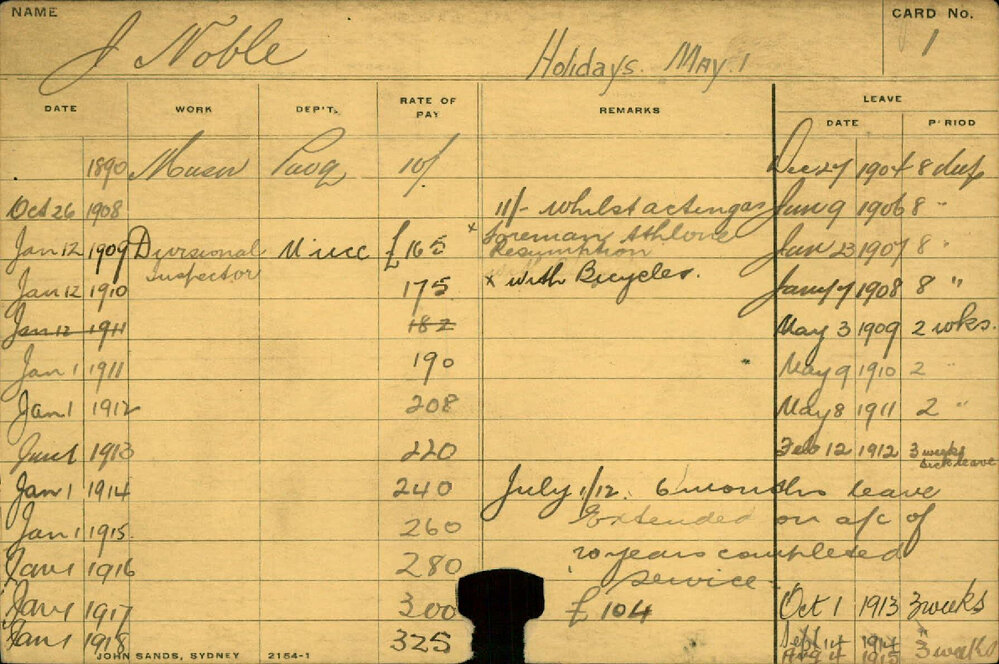 NAME
J Noble
Holidays. May. 1
CARD No.
1
DATE WORK DEP'T. RATE OF PAY REMARKS LEAVE
DATE PERIOD
1890 Mason 10/ Dec 27 1904 8 days
Oct 26 1908 11/- whilst acting as Jan 9 1906 8 "
Jan 12 1909 Divisional £165 x foreman Athlone Jan 23 1907 8 "
Inspector Resumption
Jan 12 1910 175 x with Bicycles. Jany 7 1908 8 "
Jan 12 1911 182 May 3 1909 2 wks.
Jan 1 1911 190 May 9 1910 2 "
Jan 1 1912 208 May 8 1911 2 "
Jan 1 1913 220 Feb 12 1912 3 weeks
sick leave
Jan 1 1914 240 July 1/12. 6 months leave
Jan 1 1915 260 Extended on a/c of
Jan 1 1916 280 20 years completed
service
Jan 1 1917 300 £104 Oct 1 1913 3 weeks
Jan 1 1918 325 Sept 14 1914 3 weeks
Aug 4 1915
JOHN SANDS, SYDNEY 2154-1